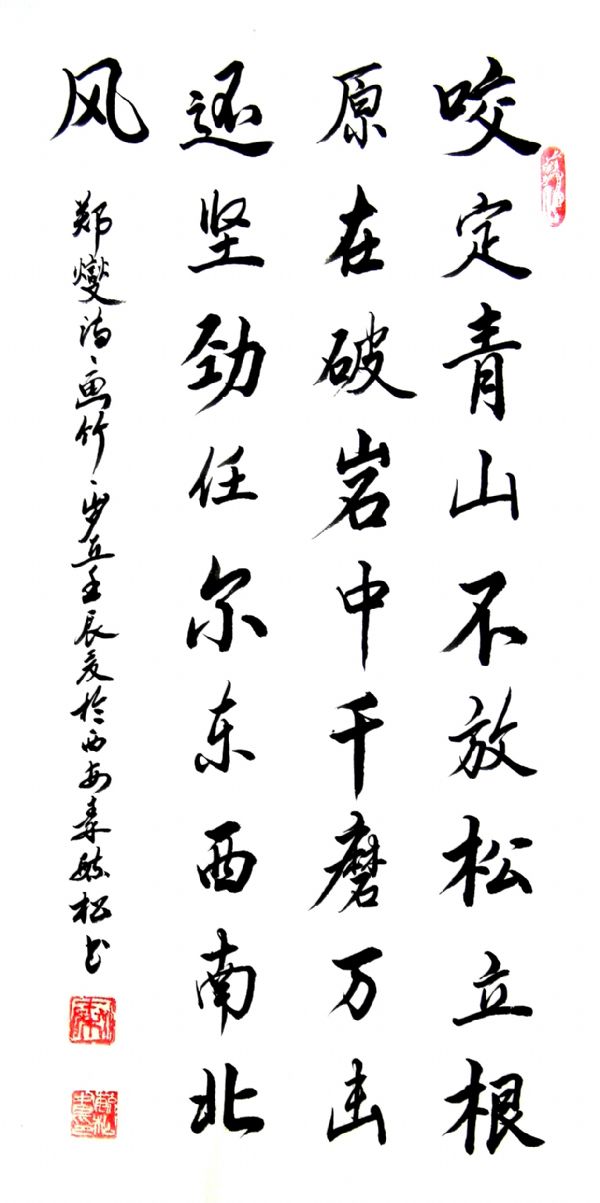 咬定青山不放松立根
原在破岩中千磨万击
还坚劲任尔东西南北
风
郑燮诗、画竹、岁壬辰夏於西安松书